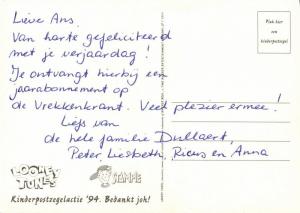 Lieve Ans.
Van harte gefeliciteerd
met je verjaardag!
Je ontvangt hierbij een
jaarabonnement op
de Vrekkenkrant. Veel plezier ermee!
Liefs van
de hele familie Dullaert,
Peter, Liesbeth, Rieus en Anna
Plak hier
een
postzegel
LOONEY
TUNES
STAMPIE
Kinderpostzegelactie '94. Bedankt joh!